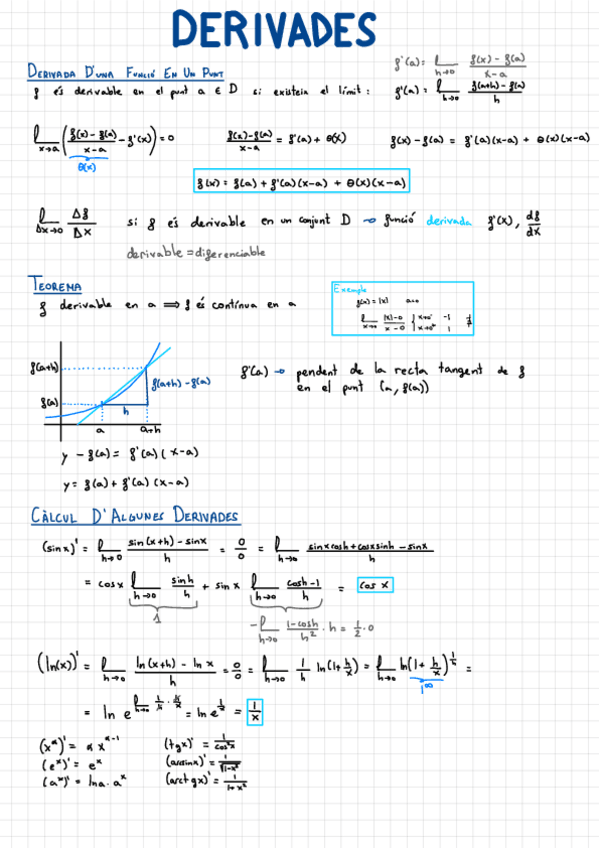 DERIVADES
f'(a) = lim h→0 (f(x) - f(a))/(x-a)
DERIVADA D'UNA FUNCIÓ EN UN PUNT
f és derivable en el punt a ∈ D si existeix el límit: f'(a) = lim h→0 (f(a+h) - f(a))/h
lim x→a ((f(x) - f(a))/(x-a) - f'(x)) = 0 (f(x)-f(a))/(x-a) = f'(a) + θ(x) f(x) - f(a) = f'(a)(x-a) + θ(x)(x-a)
θ(x)
f(x) = f(a) + f'(a)(x-a) + θ(x)(x-a)
lim Δx→0 Δf/Δx si f és derivable en un conjunt D → funció derivada f'(x), df/dx
derivable = diferenciable
TEOREMA
f derivable en a ⟹ f és contínua en a
Exemple
f(x) = |x| a=0
lim x→0 (|x|-0)/(x-0) { x→0⁻ -1
x→0⁺ 1
f(a+h)
f(a)
f(a+h) - f(a)
h
a a+h
f'(a) → pendent de la recta tangent de f
en el punt (a, f(a))
y - f(a) = f'(a)(x-a)
y = f(a) + f'(a)(x-a)
CÀLCUL D'ALGUNES DERIVADES
(sin x)' = lim h→0 (sin(x+h) - sin x)/h = 0/0 = lim h→0 (sin x cosh + cos x sinh - sin x)/h
= cos x lim h→0 sinh/h + sin x lim h→0 (cosh-1)/h = cos x
1
-lim h→0 (1-cosh)/h² · h = 1/2 · 0
(ln(x))' = lim h→0 (ln(x+h) - ln x)/h = 0/0 = lim h→0 1/h ln(1+h/x) = lim h→0 ln(1+h/x)^(1/h) =
1^∞
= ln e^(lim h→0 1/h · h/x) = ln e^(1/x) = 1/x
(x^α)' = α x^(α-1) (tg x)' = 1/cos²x
(e^x)' = e^x (arcsin x)' = 1/√(1-x²)
(a^x)' = ln a · a^x (arctg x)' = 1/(1+x²)